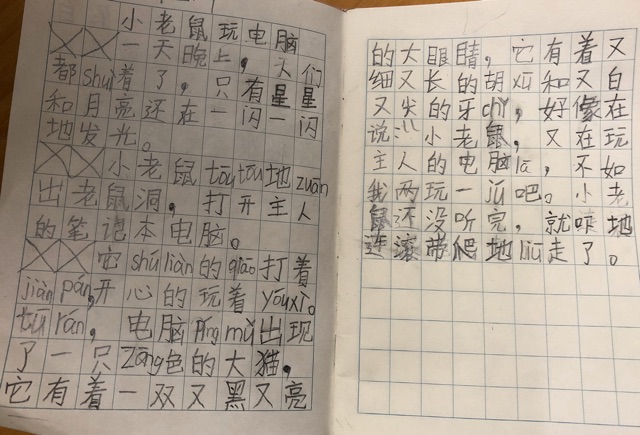 小老鼠玩电脑
一天晚上，人们
都shuì着了，只有星星
和月亮还在一闪一闪
地发光。
小老鼠tōutōu地zuān
出老鼠洞，打开主人
的笔记本电脑。
它shúliàn的qiāo打着
jiànpán,开心的玩着yóuxì。
tūrán，电脑píngmù出现
了一只zōng色的大猫。
它有着一双又黑又亮
的大眼睛，它有着又
细又长的胡xū和又白
又尖的牙chǐ，好像在
说：小老鼠，又在玩
主人的电脑la，不如
我两玩一jú吧。小老
鼠还没听完，就唉地
连滚带爬地liū走了。